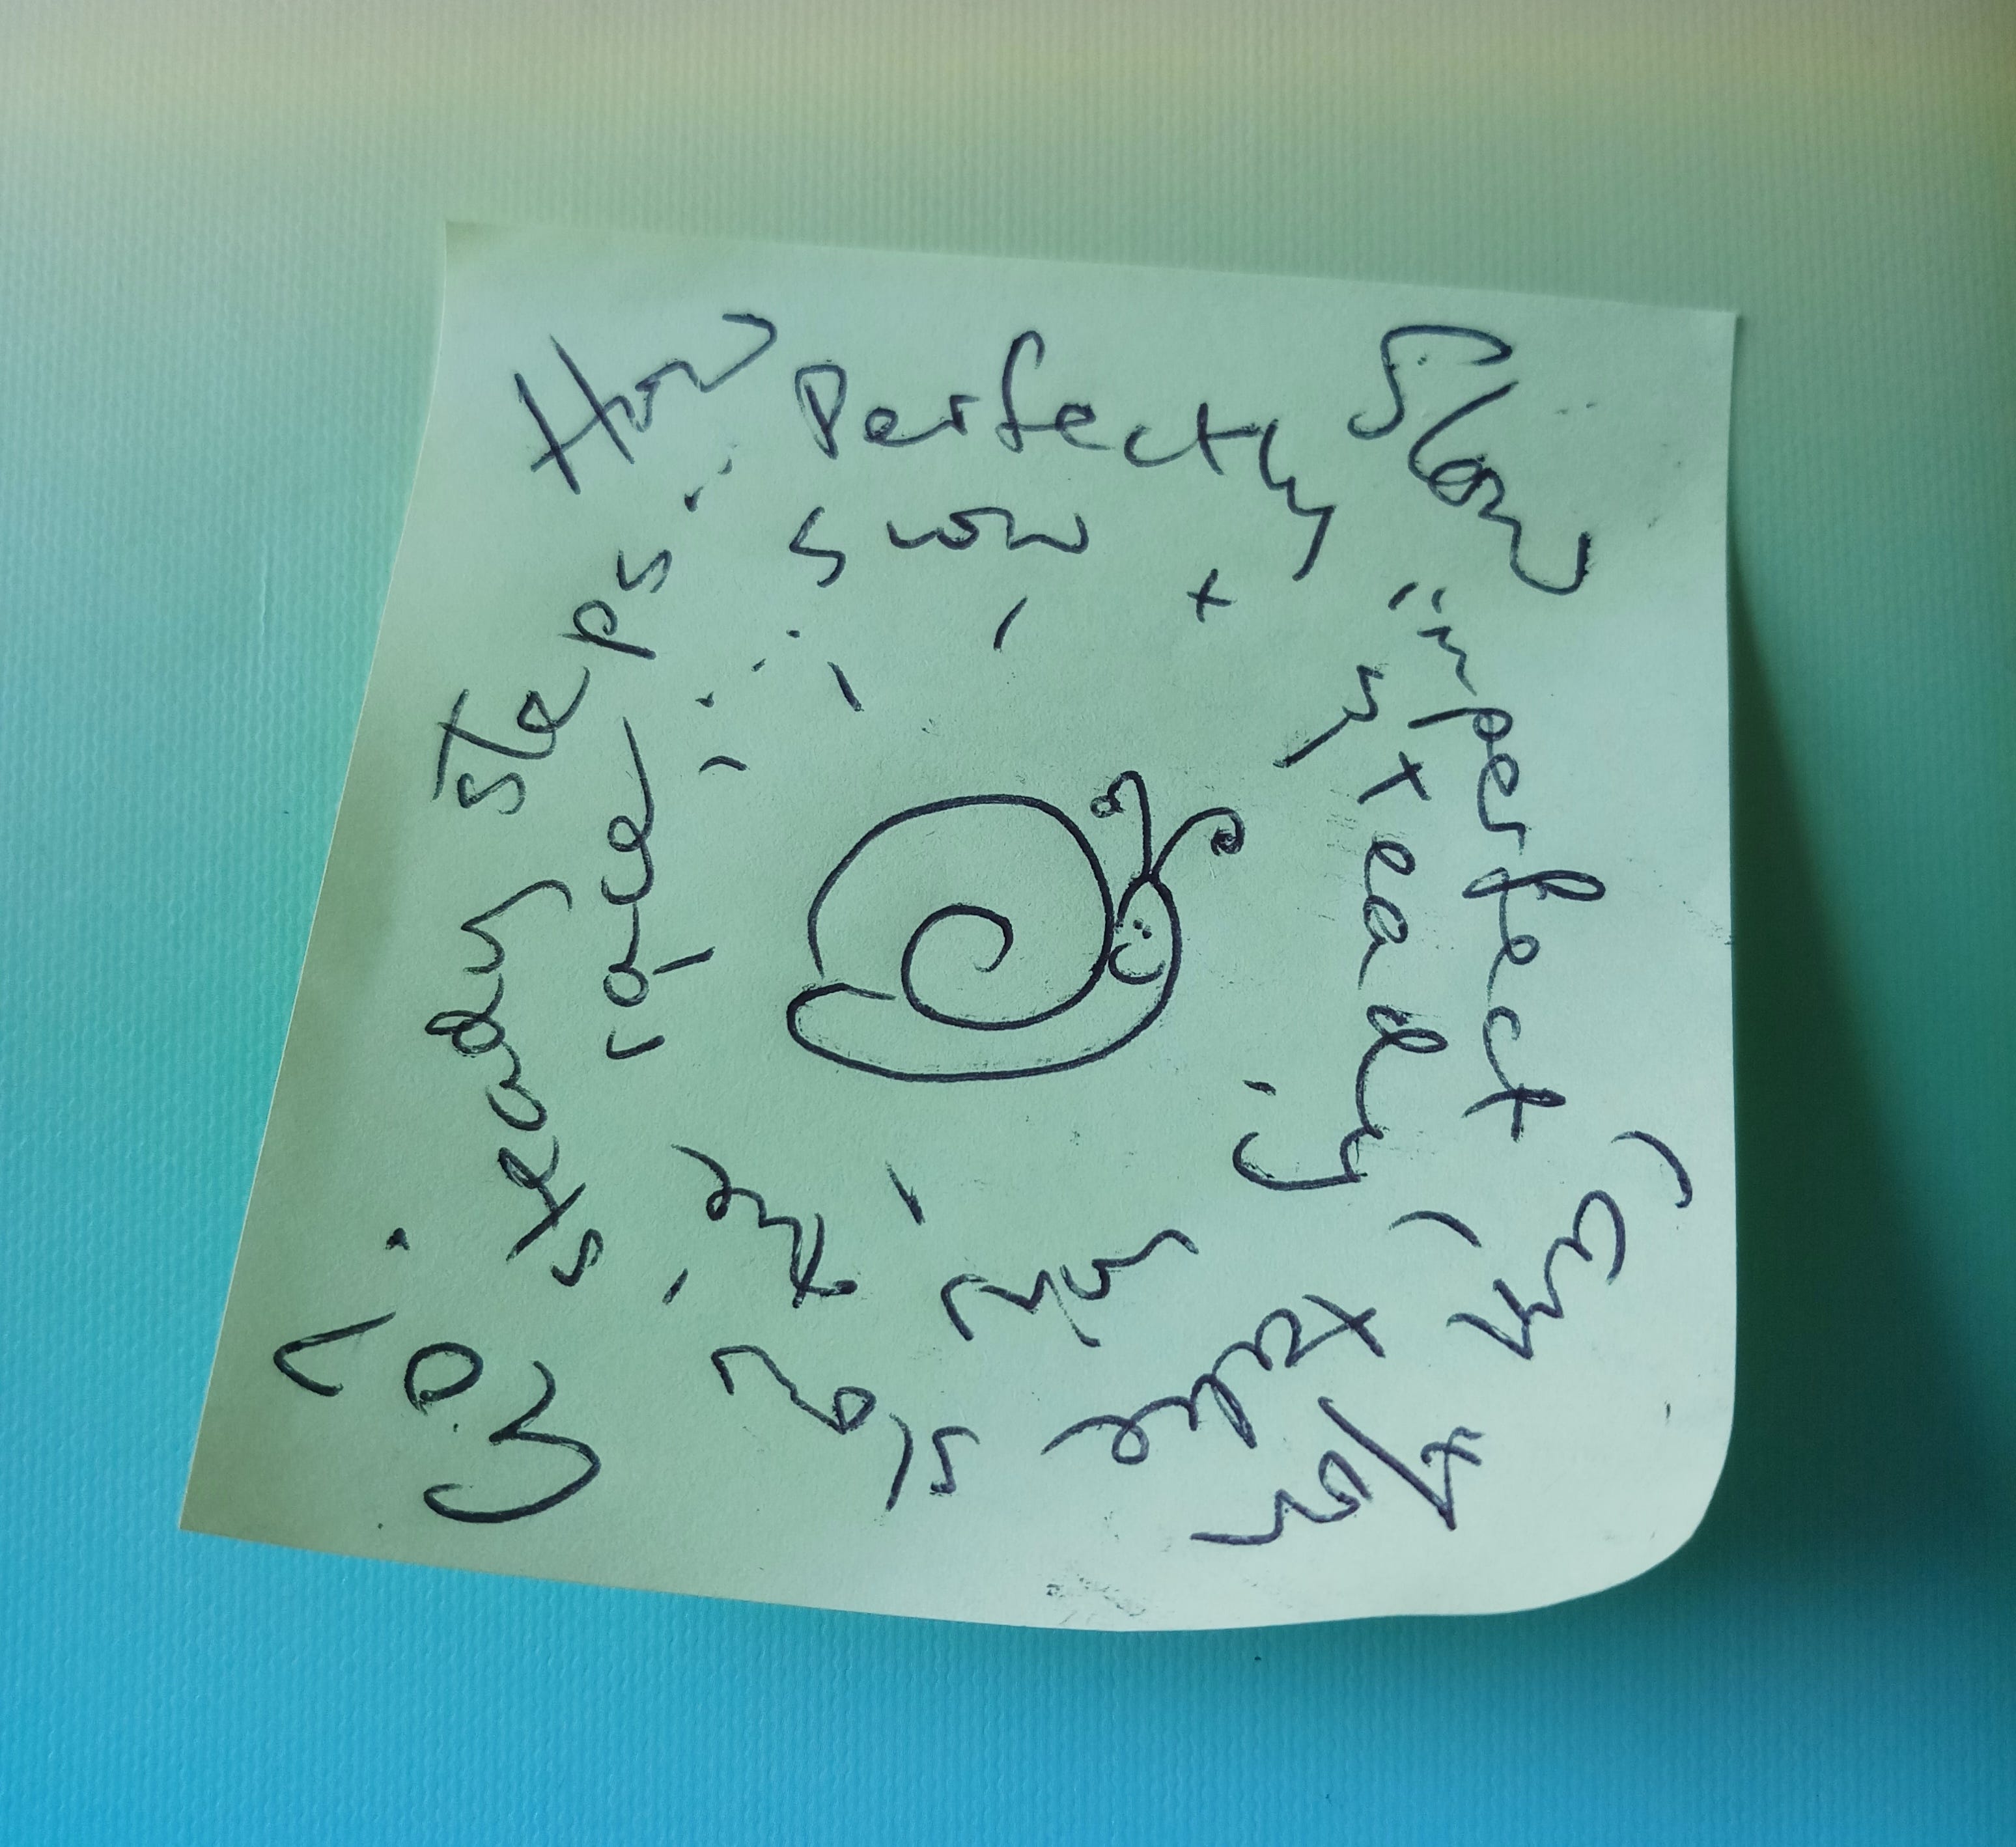 How Perfectly Slow imperfect Can you take slow, steady steps...
Slow + steady win the race...